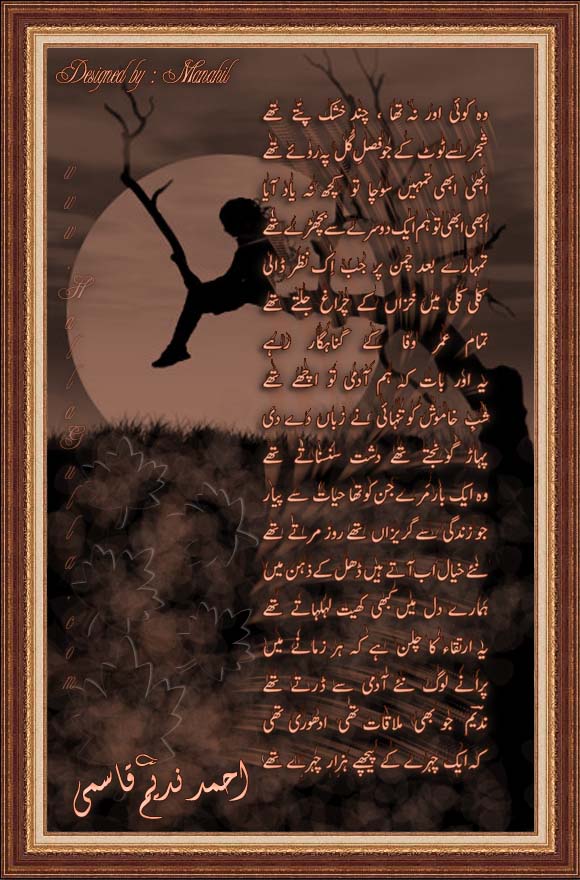 Designed by : Manahil
وہ کوئی اور نہ تھا ، چند خشک پتّے تھے
شجر سے ٹوٹ کے جو فصلِ گل پہ روئے تھے
ابھی ابھی تمہیں سوچا تو کچھ نہ یاد آیا
ابھی ابھی تو ہم ایک دوسرے سے بچھڑے تھے
تمہارے بعد چمن پر جب اِک نظر ڈالی
کلی کلی میں خزاں کے چراغ جلتے تھے
تمام عمر وفا کے گناہگار رہے
یہ اور بات کہ ہم آدمی تو اچھے تھے
شب خاموش کو تنہائی نے زباں دے دی
پہاڑ گونجتے تھے دشت سنسناتے تھے
وہ ایک بار مرے جن کو تھا حیات سے پیار
جو زندگی سے گریزاں تھے روز مرتے تھے
نئے خیال اب آتے ہیں ڈھل کے ذہن میں
ہمارے دل میں کبھی کھیت لہلہاتے تھے
یہ ارتقاء کا چلن ہے کہ ہر زمانے میں
پرانے لوگ نئے آدمی سے ڈرتے تھے
ندیمؔ جو بھی ملاقات تھی ادھوری تھی
کہ ایک چہرے کے پیچھے ہزار چہرے تھے
احمد ندیم قاسمی